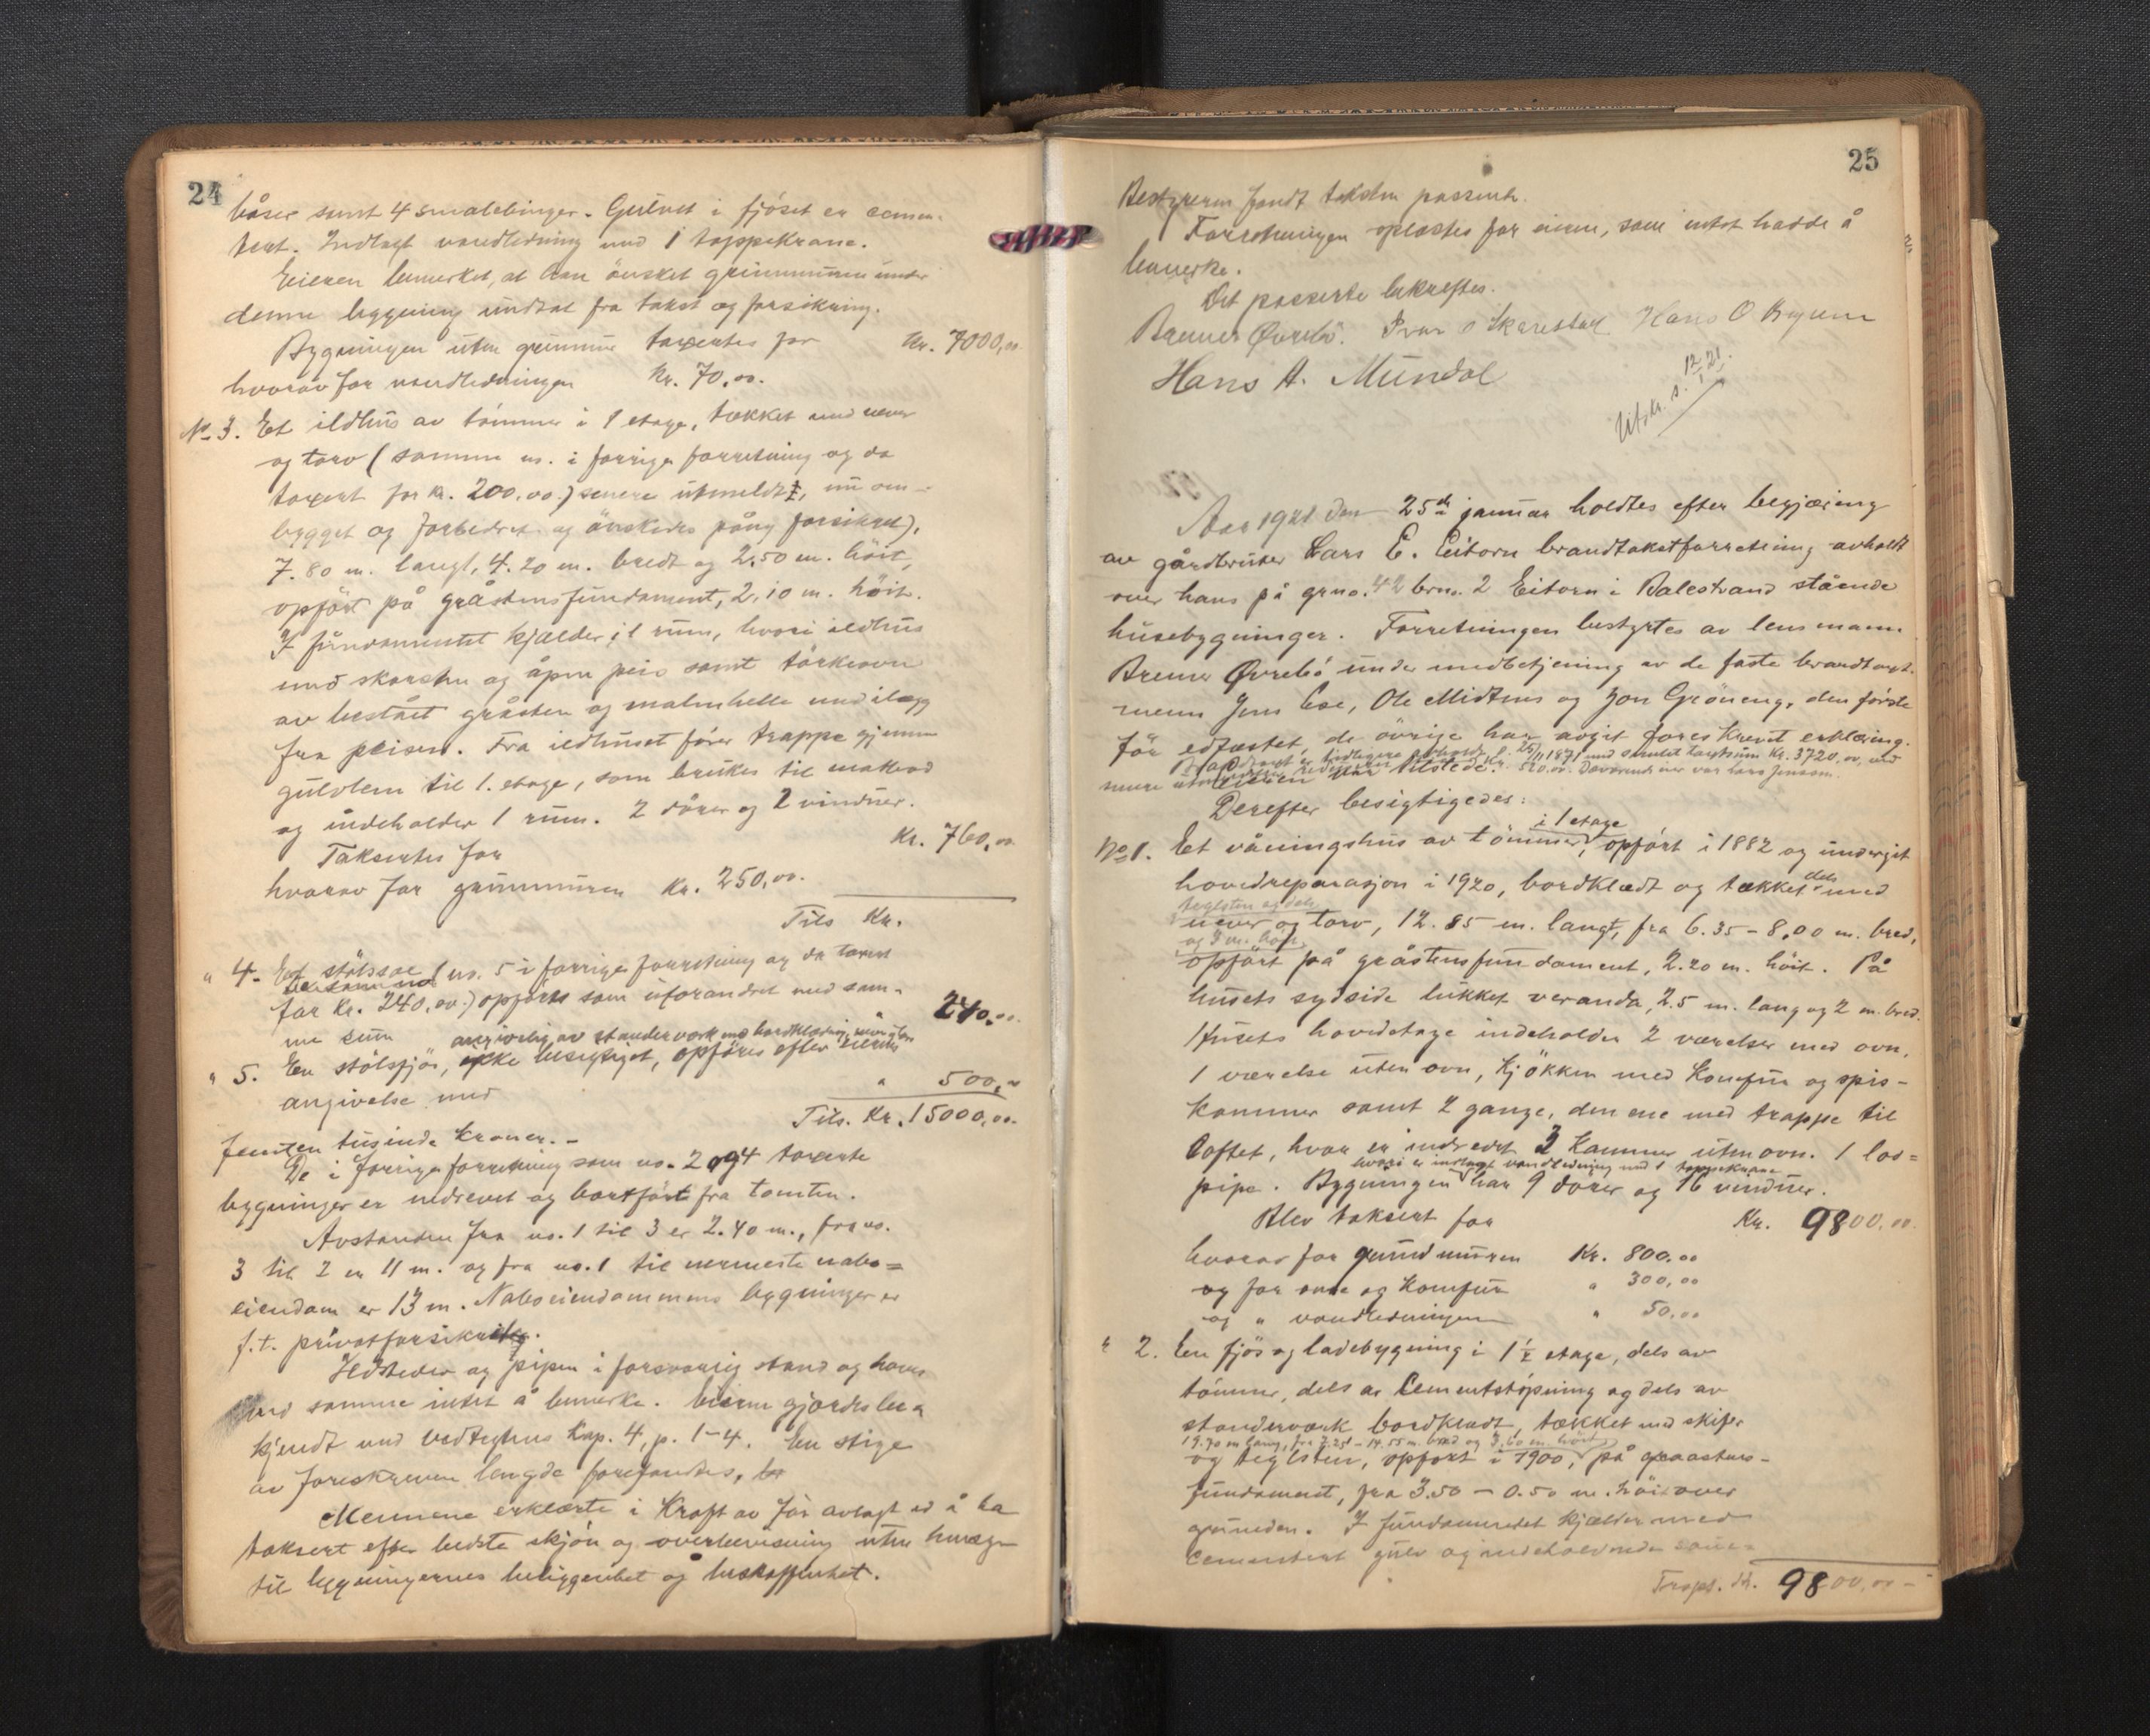 24
båser samt 4 smalebinger. Gulvet i fjöset er cemen-
tert. Indlagt vandledning med 1 tappekrane.
Eieren bemerket, at han önsket grunnmuren under
denne bygning undtat fra takst og forsikring.
Bygningen uten grunmur taxertes for Kr. 7000,00
hvorav for vandledningen Kr. 70,00.
No. 3. Et ildhus av tömmer i 1 etage, tækket med never
og torv (samme no. i forrige forretning og da
taxert for kr. 200,00.) senere utmeldt, nu om-
bygget og forbedret og önskedes påny forsikret).
7.80 m. langt, 4.20 m. bredt og 2,50 m. höit,
opfört på gråstensfundament, 2,10 m. höit.
I fundamentet kjælder i 1 rum, hvori ildhus
med skorsten og åpen peis samt törkeovn
av bestået gråsten og malmhelle med ilæg
fra peisen. Fra ildhuset förer trappe gjennem
gulvlem til 1. etage, som brukes til matbod
og indeholder 1 rum. 2 dörer og 2 vinduer.
Taksertes for Kr. 760,00
hvorav for grunmuren Kr. 250,00.
Tils Kr.
" 4. Et stölssæl (no. 5 i forrige forretning og da taxert
for Kr. 240,00.) opförtes som uforandret med sam-
me sum 240,00.
angivelig av stenderværk med bordklædning,
" 5. En stölsfjös, ikke besigtiget, opföres efter eierens
angivelse med " 500,00
Tils. Kr. 15000,00.
femten tusinde kroner.-
De i forrige forretning som no. 2 og 4 taxerte
bygninger er nedrevet og bortfört fra tomten.
Avstanden fra no. 1 til 3 er 2.40 m., fra no.
3 til 2 er 11 m. og fra no. 1 til nermeste nabo=
eiendom er 13 m. Naboeiendommens bygninger er
f.t. privatforsikret.
Ildsteder og piper i forsvarlig stand og haves
ved samme intet å bemerke. Eieren gjordes be-
kjendt med vedtegtens Kap. 4, p. 1-4. En stige
av foreskreven længde forefandtes.
Mennene erklærte i Kraft av för avlagt ed å ha
taksert efter bedste skjön og overbevisning uten hensyn
til bygningernes beliggenhet og beskaffenhet.
25
Bestyreren fandt taksten passende.
Forretningen oplæstes for eieren, som intet hadde å
bemerke.
Det passerte bekræftes.
Bremer Øvrebö. Ivar O Skarestad Hans O Bynn
Hans A. Mundal
Utskr. s. 12/1 21.
Aar 1921 den 25de januar holdtes efter begjæring
av gårdbruker Lars E. Eitorn brandtakstforretning avholdt
over hans på grno. 42 brno. 2 Eitorn i Balestrand stående
husebygninger. Forretningen bestyrtes av lensmann
Bremer Øvrebö under medbetjening av de faste brandtakst-
menn Jens Ese, Ole Midtnes og Jon Gröneng, den förste
för edfæstet, de övrige har avgit foreskrevet erklæring.
Brandtaxt er tidligere avholdt 25/11 1871 med samlet taxtsum Kr. 3720,00, ved
senere Kr. 520,00. Daværende eier var Lars Jenssen.
Eieren var tilstede.
Derefter besigtigedes:
i 1 etage
No 1. Et våningshus av tömmer, opfört i 1882 og undergit
hovedreparasjon i 1920, bordklædt og tækket dels med
teglsten og dels
never og torv, 12.85 m. langt, fra 6.35 - 8,00 m. bred,
og 3 m. höit,
opfört på gråstensfundament, 2.20 m. höit. På
husets sydside lukket veranda, 2.5 m. lang og 2 m. bred.
Husets hovedetage indeholder 2 værelser med ovn,
1 værelse uten ovn, kjökken med komfur og spis-
kammer samt 2 gange, den ene med trappe til
Loftet, hvor er indredet 3 Kammer uten ovn. 1 lös=
hvori er indlagt vandledning med 1 tappekrane
pipe. Bygningen har 9 dörer og 16 vinduer.
Blev taksert for Kr. 9800,00.
hvorav for grundmuren Kr. 800,00
og for ovne og Komfur " 300,00
og " vandledningen " 50,00
" 2. En fjös og ladebygning i 1½ etage, dels av
tömmer, dels av Cementstöpning og dels av
stenderværk bordklædt, tækket med skifer
19.70 m lang, fra 7.25 - 14.55 m. bred og 3,60 m. höit,
og teglsten, opfört i 1900, på graastens-
fundament, fra 3.50 - 0.50 m. höi over
grunden. I fundamentet kjælder med
cementert gulv og indeholdende
Transp. Kr. 9800,00 -